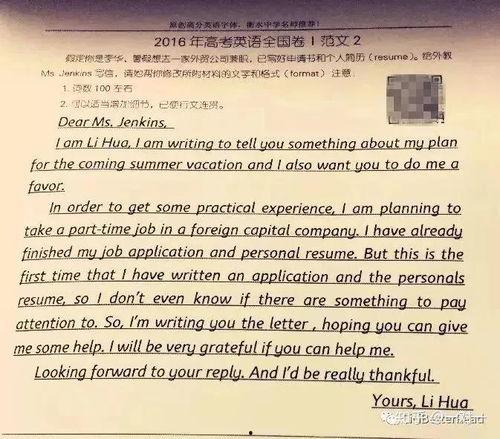 原创高分英语字体，衡水中学名师推荐！
2016年高考英语全国卷 I 范文2
假定你是李华，暑假想去一家外贸公司兼职，已写好申请书和个人简历（resume）。给外教
Ms Jenkins 写信，请她帮你修改所附材料的文字和格式（format）注意：
1. 词数 100 左右
2. 可以适当增加细节，已使行文连贯。
Dear Ms. Jenkins,
I am Li Hua, I am writing to tell you something about my plan
for the coming summer vacation and I also want you to do me a
favor.
In order to get some practical experience, I am planning to
take a part-time job in a foreign capital company. I have already
finished my job application and personal resume. But this is the
first time that I have written an application and the personals
resume, so I don't even know if there are something to pay
attention to. So, I'm writing you the letter , hoping you can give
me some help. I will be very grateful if you can help me.
Looking forward to your reply. And I'd be really thankful.
Yours, Li Hua